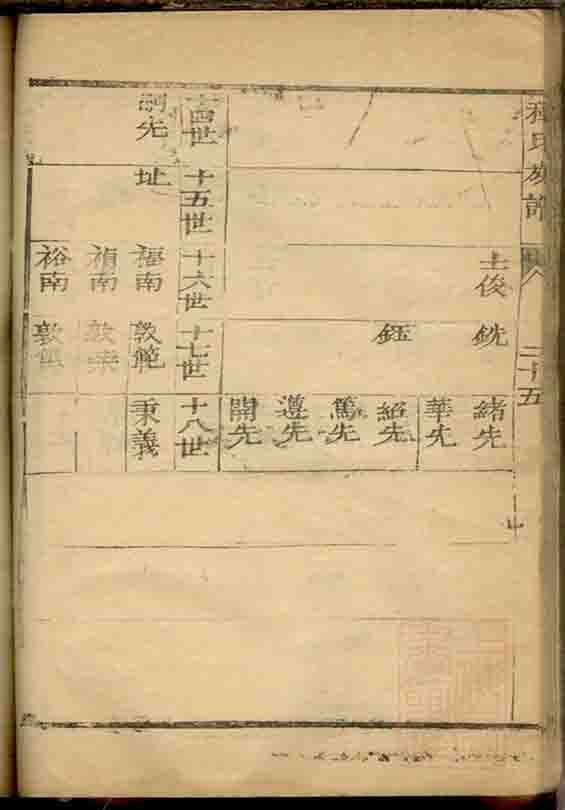 氏族譜 二十五
士俊 銑 緒先
華先
鈺 紹先
篤先
遵先
開先
十四世 十五世 十六世 十七世 十八世
嗣先 址 福南 敦範 秉義
禎南 敦
裕南 敦